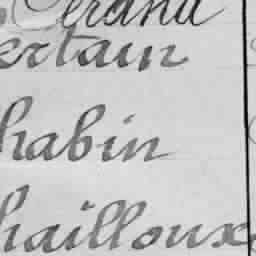 ertain
habin
hailloux